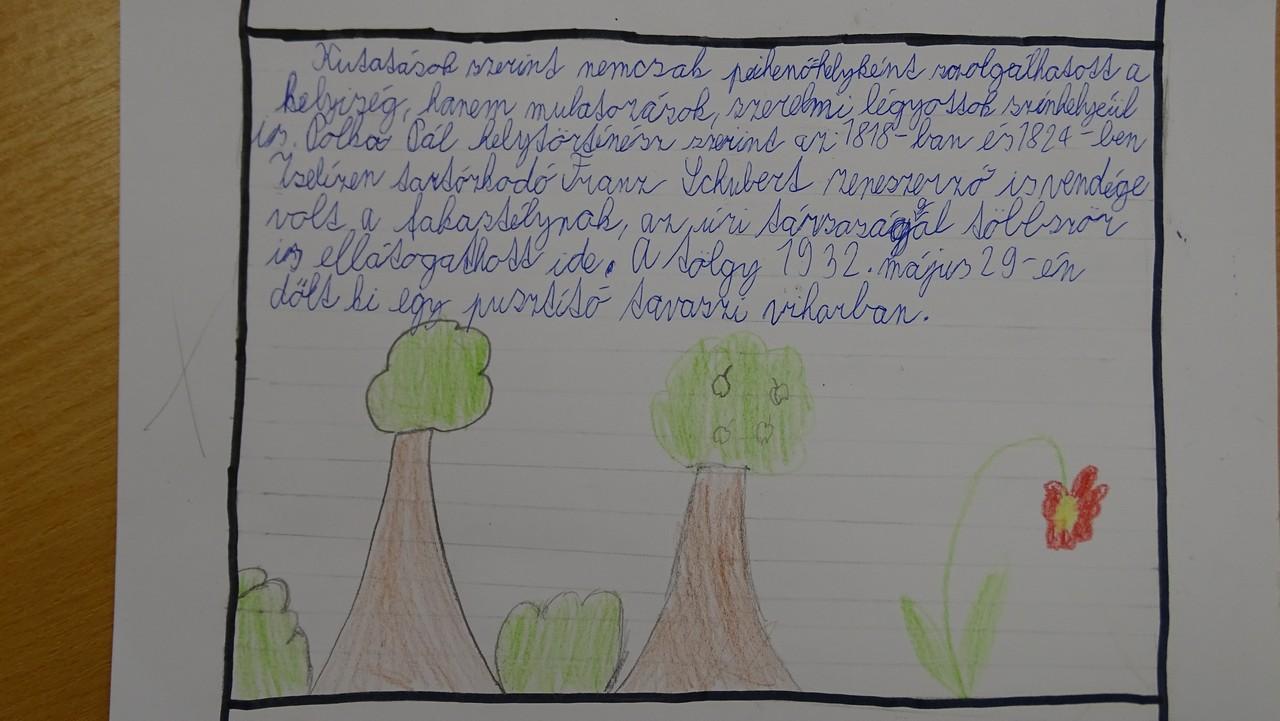 Kutatások szerint nemcsak pihenőhelyként szolgálhatott a
helyiség, hanem mulatozások, szerelmi légyottok színhelyéül
is. Polka Pál helytörténész szerint az 1818-ban és 1824-ben
Zselizen tartózkodó Franz Schubert zeneszerző is vendége
volt a fakastélynak, az úri társasággal többször
is ellátogathott ide. A tölgy 1932. május 29-én
dőlt ki egy pusztító tavaszi viharban.